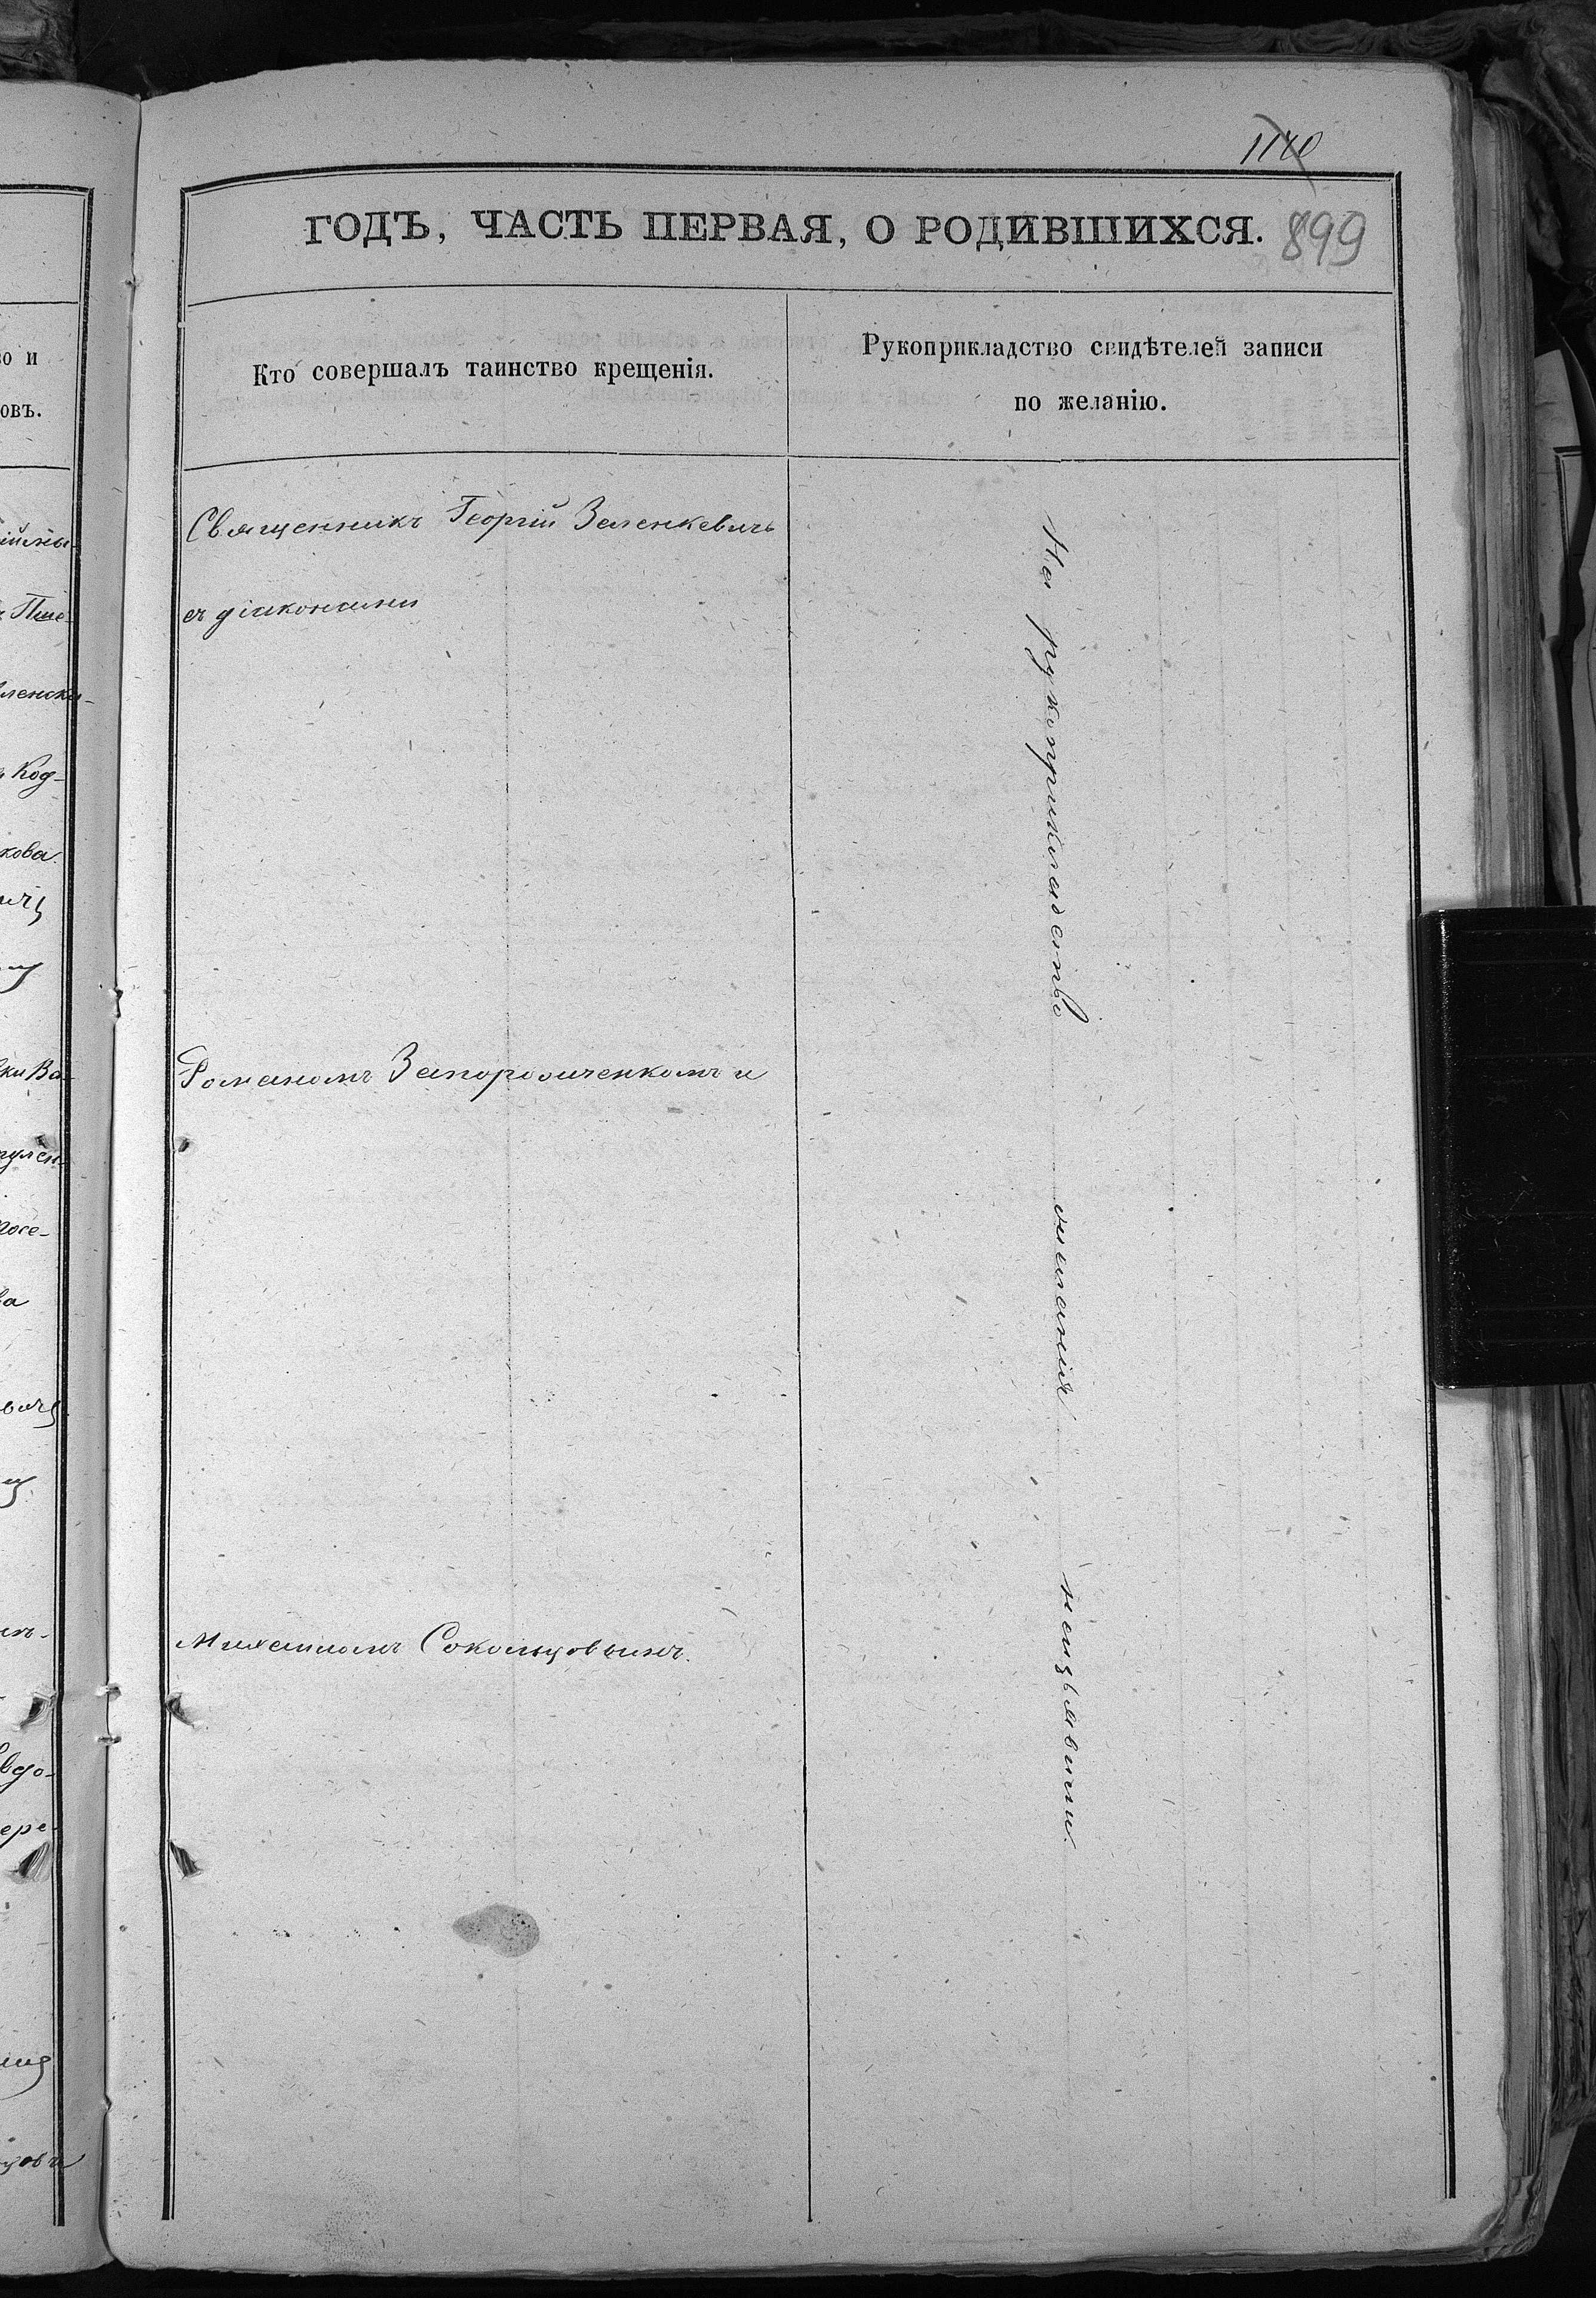 1140
ГОДЪ, ЧАСТЬ ПЕРВАЯ, О РОДИВШИХСЯ.
899
Кто совершалъ таинство крещенія.
Рукоприкладство свидѣтелей записи
по желанію.
Священникъ Георгій Зеленкевичъ
съ діаконами
Романомъ Запорожченкомъ и
Михаиломъ Сокольцовымъ.
На рукоприкладство
желанія
неизъявили.
во и
овъ.
Пше-
Код-
кова.
ки Ва-
посе-
ва
ере-